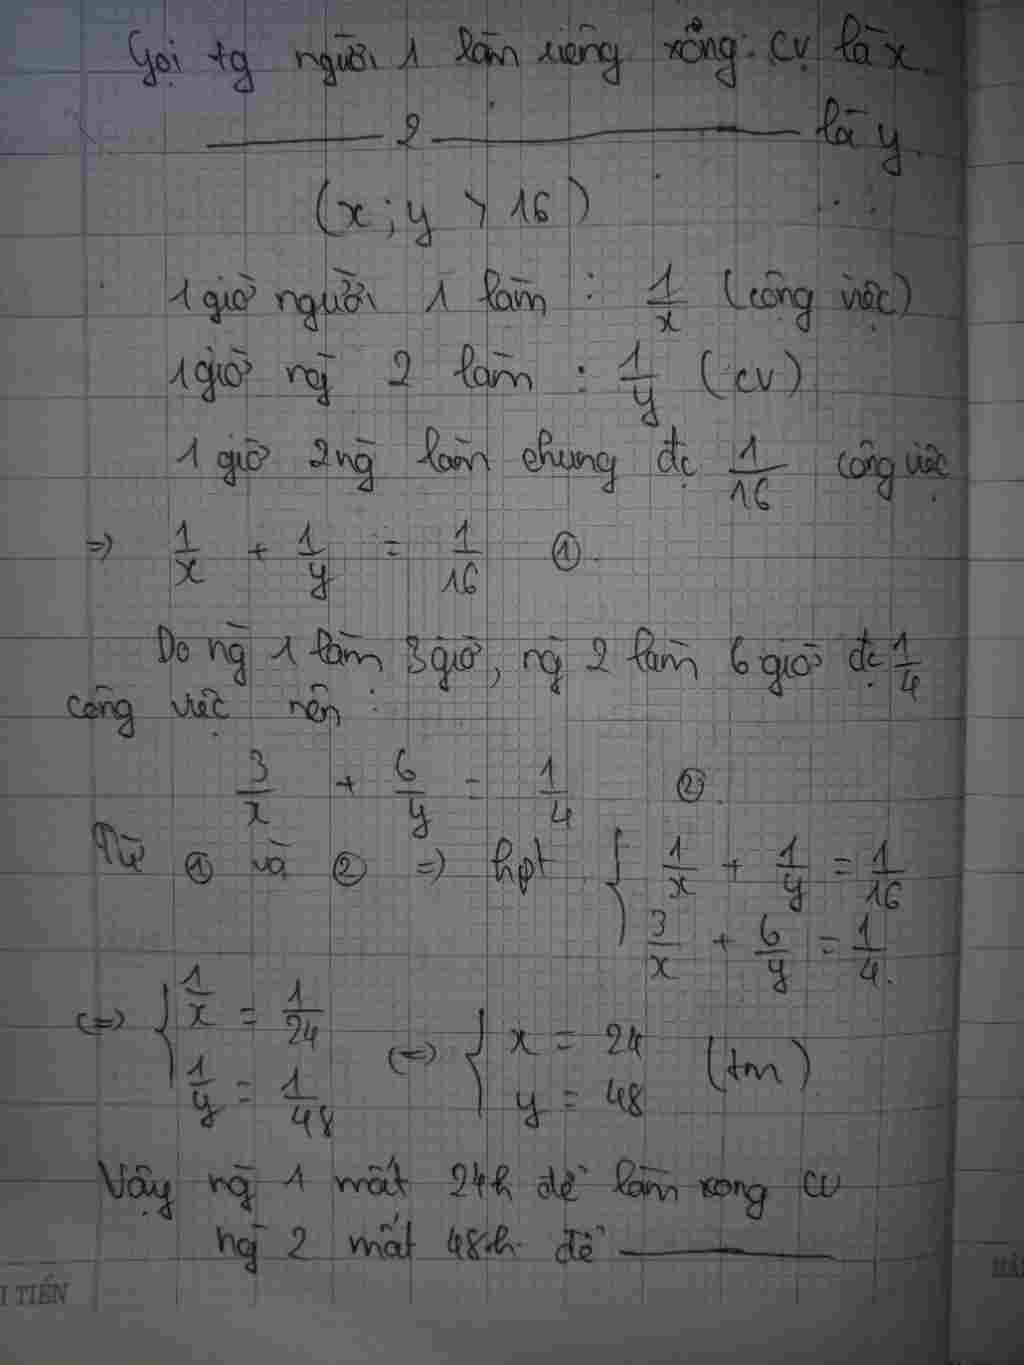 Gọi tg người 1 làm riêng xong cv là x.
——— 2 ——————— là y.
(x; y > 16)
1 giờ người 1 làm : 1/x (công việc)
1 giờ ng 2 làm : 1/y (cv)
1 giờ 2 ng làm chung đc 1/16 công việc
=> 1/x + 1/y = 1/16 ①.
Do ng 1 làm 3 giờ, ng 2 làm 6 giờ đc 1/4
công việc nên :
3/x + 6/y = 1/4 ②.
Từ ① và ② => hpt { 1/x + 1/y = 1/16
3/x + 6/y = 1/4.
<=> { 1/x = 1/24
1/y = 1/48
<=> { x = 24
y = 48
(tm)
Vậy ng 1 mất 24h để làm xong cv
ng 2 mất 48h để ————
I TIẾN
HẢI